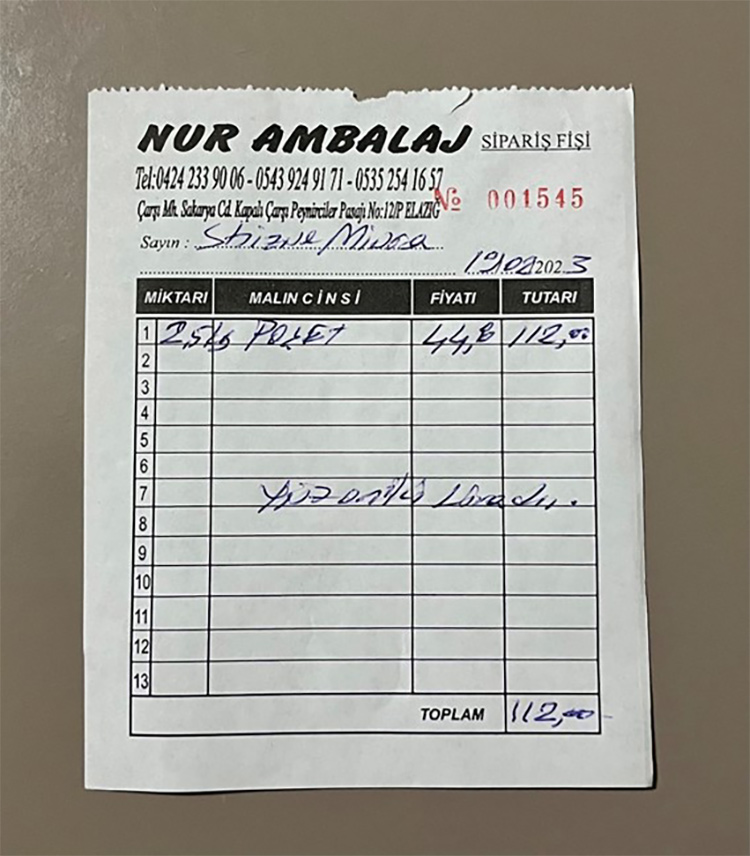 NUR AMBALAJ SİPARİŞ FİŞİ
Tel:0424 233 90 06 - 0543 924 91 71 - 0535 254 16 57
Çarşı Mh. Sakarya Cd. Kapalı Çarşı Peynirciler Pasajı No:12/P ELAZIĞ
№ 001545
Sayın :
2023
MİKTARI MALIN CİNSİ FİYATI TUTARI
1 2,5 kg POŞET 112,00
2
3
4
5
6
7
8
9
10
11
12
13
TOPLAM 112,00